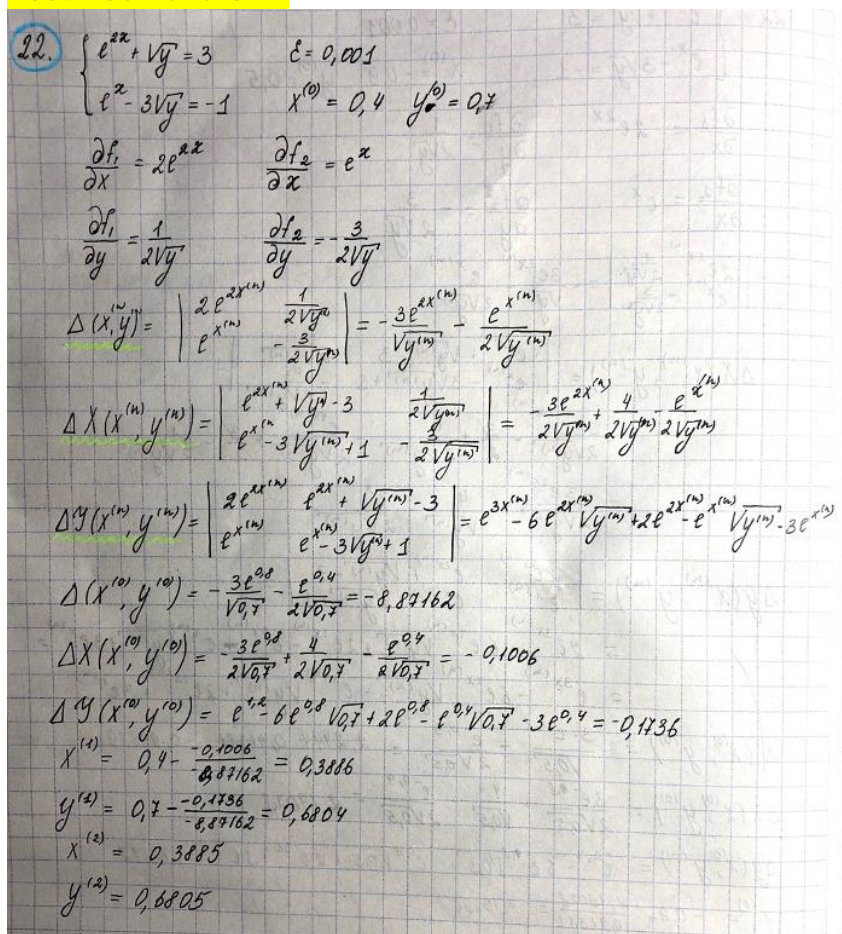 22. { e^{2x} + √y = 3    ε = 0,001
e^x - 3√y = -1    x^{(0)} = 0,4  y^{(0)} = 0,7
∂f₁/∂x = 2e^{2x}    ∂f₂/∂x = e^x
∂f₁/∂y = 1/(2√y)    ∂f₂/∂y = -3/(2√y)
Δ(x^{(n)}, y^{(n)}) = | 2e^{2x^{(n)}}  1/(2√y^{(n)}) ; e^{x^{(n)}}  -3/(2√y^{(n)}) | = -3e^{2x^{(n)}}/√y^{(n)} - e^{x^{(n)}}/(2√y^{(n)})
ΔX(x^{(n)}, y^{(n)}) = | e^{2x^{(n)}} + √y^{(n)} - 3  1/(2√y^{(n)}) ; e^{x^{(n)}} - 3√y^{(n)} + 1  -3/(2√y^{(n)}) | = -3e^{2x^{(n)}}/(2√y^{(n)}) + 4/(2√y^{(n)}) - e^{x^{(n)}}/(2√y^{(n)})
ΔY(x^{(n)}, y^{(n)}) = | 2e^{2x^{(n)}}  e^{2x^{(n)}} + √y^{(n)} - 3 ; e^{x^{(n)}}  e^{x^{(n)}} - 3√y^{(n)} + 1 | = e^{3x^{(n)}} - 6e^{2x^{(n)}}√y^{(n)} + 2e^{2x^{(n)}} - e^{x^{(n)}}√y^{(n)} - 3e^{x^{(n)}}
Δ(x^{(0)}, y^{(0)}) = -3e^{0,8}/√0,7 - e^{0,4}/(2√0,7) = -8,87162
ΔX(x^{(0)}, y^{(0)}) = -3e^{0,8}/(2√0,7) + 4/(2√0,7) - e^{0,4}/(2√0,7) = -0,1006
ΔY(x^{(0)}, y^{(0)}) = e^{1,2} - 6e^{0,8}√0,7 + 2e^{0,8} - e^{0,4}√0,7 - 3e^{0,4} = -0,1736
x^{(1)} = 0,4 - (-0,1006)/(-8,87162) = 0,3886
y^{(1)} = 0,7 - (-0,1736)/(-8,87162) = 0,6804
x^{(2)} = 0,3885
y^{(2)} = 0,6805